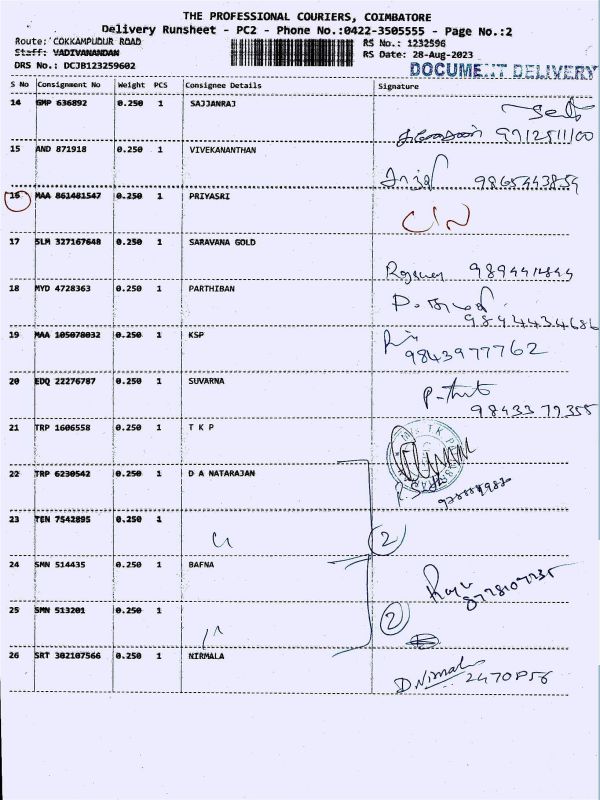 THE PROFESSIONAL COURIERS, COIMBATORE
Delivery Runsheet - PC2 - Phone No.:0422-3505555 - Page No.:2
Route: COKKAMPUDUR ROAD RS No.: 1232596
Staff: VADIVANANDAN RS Date: 28-Aug-2023
DRS No.: DCJB123259602 DOCUMENT DELIVERY
S No Consignment No Weight PCS Consignee Details Signature
14 GMP 636892 0.250 1 SAJJANRAJ
9712511100
15 AND 871918 0.250 1 VIVEKANANTHAN
9865443854
16 MAA 861481547 0.250 1 PRIYASRI
17 SLM 327167648 0.250 1 SARAVANA GOLD
18 MYD 4728363 0.250 1 PARTHIBAN
9844434686
19 MAA 105078032 0.250 1 KSP
9843977762
20 EDQ 22276787 0.250 1 SUVARNA
98433 79355
21 TRP 1606558 0.250 1 T K P
22 TRP 6230542 0.250 1 D A NATARAJAN
23 TEN 7542895 0.250 1 2
24 SMN 514435 0.250 1 BAFNA
8778107235
25 SMN 513201 0.250 1 2
26 SRT 302107566 0.250 1 NIRMALA
D.Nirmala